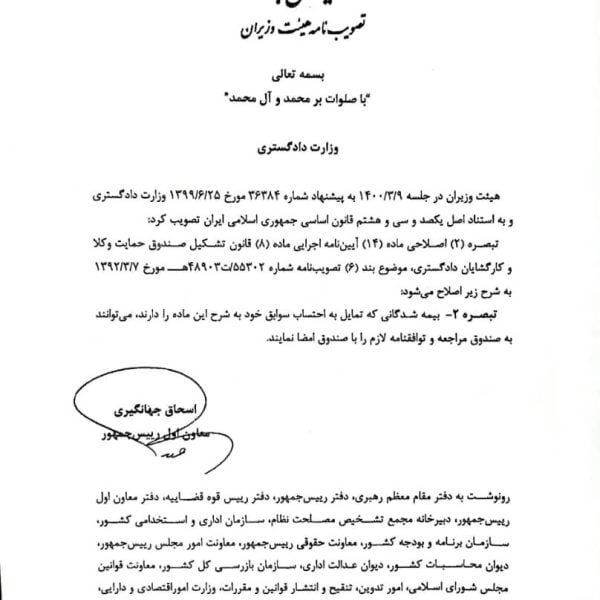 تصویب نامه هیئت وزیران
بسمه تعالی
"با صلوات بر محمد و آل محمد"
وزارت دادگستری
هیئت وزیران در جلسه ۱۴۰۰/۳/۹ به پیشنهاد شماره ۳۶۳۸۴ مورخ ۱۳۹۹/۶/۲۵ وزارت دادگستری
و به استناد اصل یکصد و سی و هشتم قانون اساسی جمهوری اسلامی ایران تصویب کرد:
تبصره (۲) اصلاحی ماده (۱۴) آیین‌نامه اجرایی ماده (۸) قانون تشکیل صندوق حمایت وکلا
و کارگشایان دادگستری، موضوع بند (۶) تصویب‌نامه شماره ۵۵۳۰۲/ت۴۸۹۰۳هـ مورخ ۱۳۹۲/۳/۷
به شرح زیر اصلاح می‌شود:
تبصره ۲- بیمه شدگانی که تمایل به احتساب سوابق خود به شرح این ماده را دارند، می‌توانند
به صندوق مراجعه و توافقنامه لازم را با صندوق امضا نمایند.
اسحاق جهانگیری
معاون اول رییس‌جمهور
رونوشت به دفتر مقام معظم رهبری، دفتر رییس‌جمهور، دفتر رییس قوه قضاییه، دفتر معاون اول
رییس‌جمهور، دبیرخانه مجمع تشخیص مصلحت نظام، سازمان اداری و استخدامی کشور،
سازمان برنامه و بودجه کشور، معاونت حقوقی رییس‌جمهور، معاونت امور مجلس رییس‌جمهور،
دیوان محاسبات کشور، دیوان عدالت اداری، سازمان بازرسی کل کشور، معاونت قوانین
مجلس شورای اسلامی، امور تدوین، تنقیح و انتشار قوانین و مقررات، وزارت امور اقتصادی و دارایی،